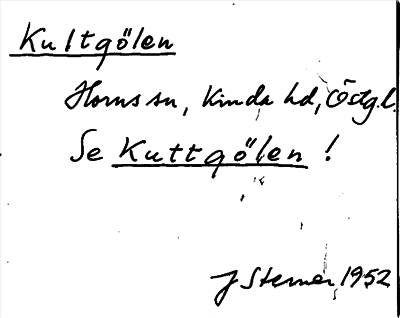 Kultgölen
Horns sn, Kinda hd, Östg.l.
Se Kuttgölen!
J Sterner 1952